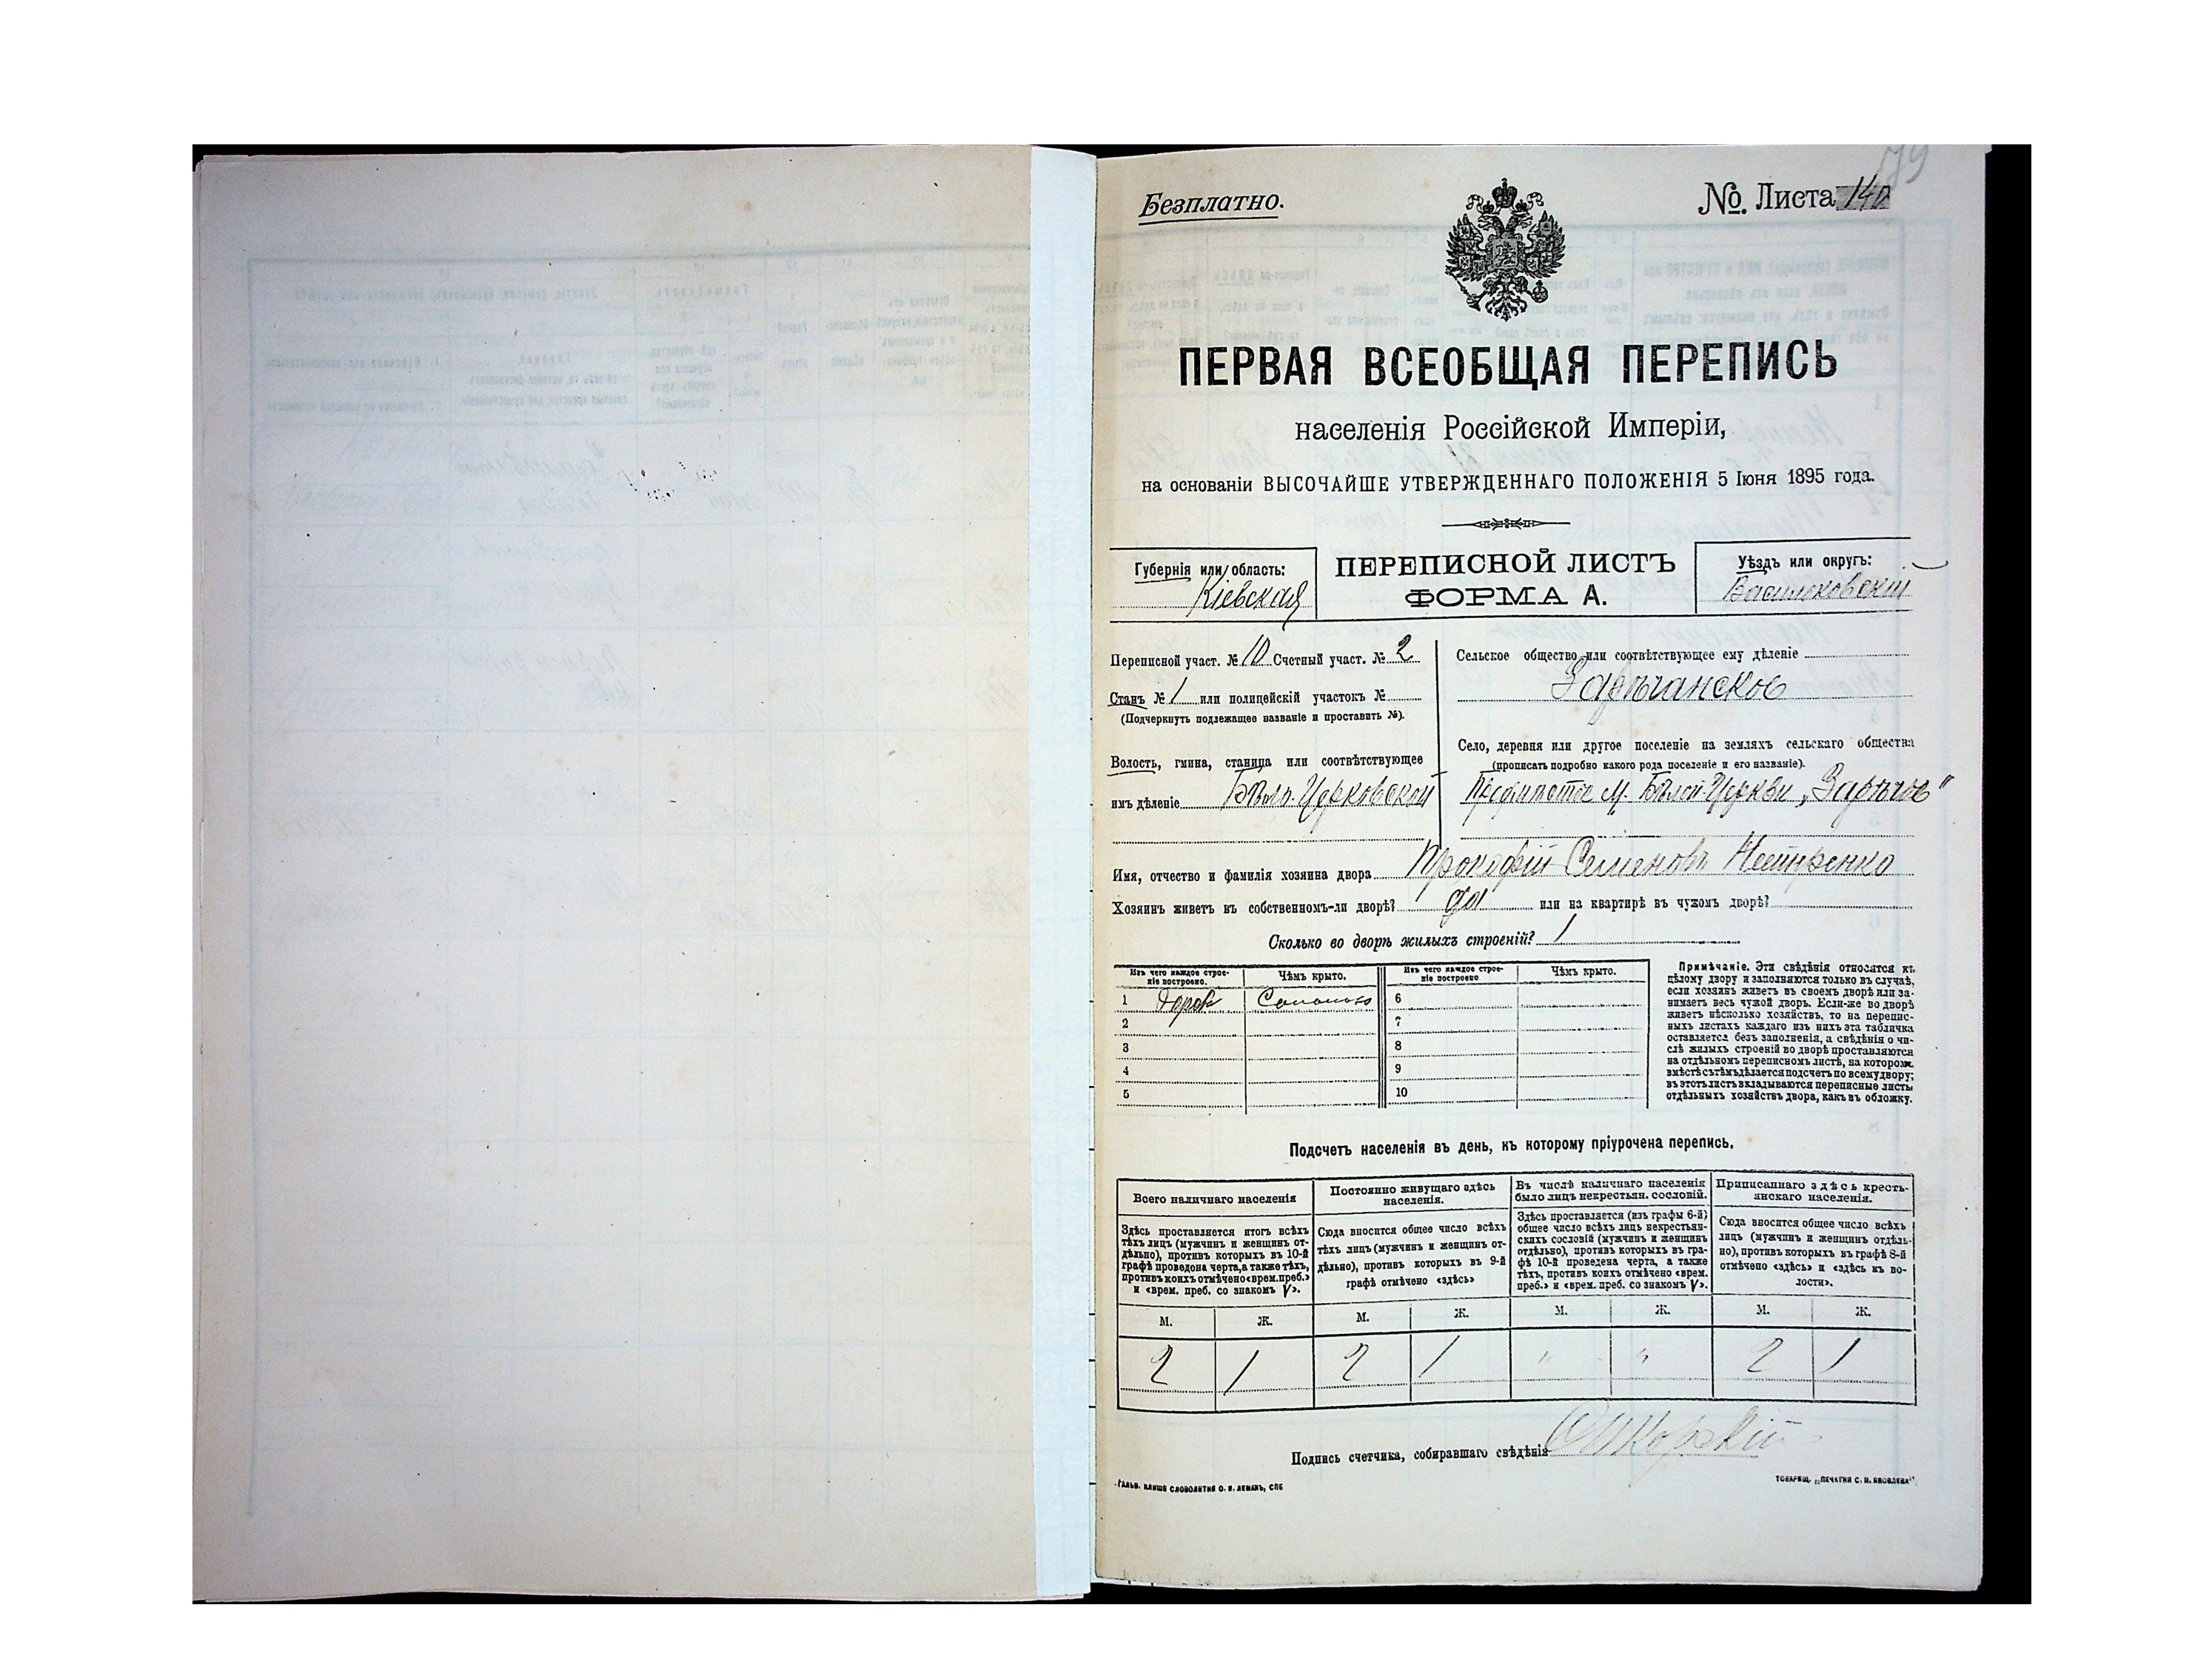 Безплатно.
№. Листа 140
ПЕРВАЯ ВСЕОБЩАЯ ПЕРЕПИСЬ
населенія Россійской Имперіи,
на основаніи ВЫСОЧАЙШЕ УТВЕРЖДЕННАГО ПОЛОЖЕНІЯ 5 Іюня 1895 года.
Губернія или область:
Кіевская
ПЕРЕПИСНОЙ ЛИСТЪ
ФОРМА А.
Уѣздъ или округъ:
Васильковскій
Переписной участ. № 10 Счетный участ. № 2
Станъ № 1 или полицейскій участокъ №
(Подчеркнуть подлежащее названіе и проставить №).
Волость, гмина, станица или соотвѣтствующее
имъ дѣленіе Бѣло-Церковской
Сельское общество или соотвѣтствующее ему дѣленіе
Зарѣчанское
Село, деревня или другое поселеніе на земляхъ сельскаго общества
(прописать подробно какого рода поселеніе и его названіе).
Предмѣстье м. Бѣлой-Церкви „Зарѣчье"
Имя, отчество и фамилія хозяина двора Прокофій Семеновъ Нестеренко
Хозяинъ живетъ въ собственномъ-ли дворѣ? да или на квартирѣ въ чужомъ дворѣ?
Сколько во дворѣ жилыхъ строеній? 1
Изъ чего каждое строе-
ніе построено.
Чѣмъ крыто.
Изъ чего каждое строе-
ніе построено
Чѣмъ крыто.
1 дерев Соломою 6
2 7
3 8
4 9
5 10
Примѣчаніе. Эти свѣдѣнія относятся къ
цѣлому двору и заполняются только въ случаѣ,
если хозяинъ живетъ въ своемъ дворѣ или за-
нимаетъ весь чужой дворъ. Если-же во дворѣ
живетъ нѣсколько хозяйствъ, то на перепис-
ныхъ листахъ каждаго изъ нихъ эта табличка
оставляется безъ заполненія, а свѣдѣнія о чи-
слѣ жилыхъ строеній во дворѣ проставляются
на отдѣльномъ переписномъ листѣ, на которомъ
вмѣстѣ съ тѣмъ дѣлается подсчетъ по всему двору;
въ этотъ листъ вкладываются переписные листы
отдѣльныхъ хозяйствъ двора, какъ въ обложку.
Подсчетъ населенія въ день, къ которому пріурочена перепись.
Всего наличнаго населенія
Постоянно живущаго здѣсь
населенія.
Въ числѣ наличнаго населенія
было лицъ некрестьян. сословій.
Приписаннаго здѣсь кресть-
янскаго населенія.
Здѣсь проставляется итогъ всѣхъ
тѣхъ лицъ (мужчинъ и женщинъ от-
дѣльно), противъ которыхъ въ 10-й
графѣ проведена черта, а также тѣхъ,
противъ коихъ отмѣчено «врем. преб.»
и «врем. преб. со знакомъ V».
Сюда вносится общее число всѣхъ
тѣхъ лицъ (мужчинъ и женщинъ от-
дѣльно), противъ которыхъ въ 9-й
графѣ отмѣчено «здѣсь»
Здѣсь проставляется (изъ графы 6-й)
общее число всѣхъ лицъ некрестьян-
скихъ сословій (мужчинъ и женщинъ
отдѣльно), противъ которыхъ въ гра-
фѣ 10-й проведена черта, а также
тѣхъ, противъ коихъ отмѣчено «врем.
преб.» и «врем. преб. со знакомъ V».
Сюда вносится общее число всѣхъ
лицъ (мужчинъ и женщинъ отдѣль-
но), противъ которыхъ въ графѣ 8-й
отмѣчено «здѣсь» и «здѣсь къ во-
лости».
М. Ж. М. Ж. М. Ж. М. Ж.
2 1 2 1 " " 2 1
Подпись счетчика, собиравшаго свѣдѣнія
ГАЛЬВ. КЛИШЕ СЛОВОЛИТНЯ О. И. ЛЕМАНЪ, СПБ
ТОВАРИЩ. „ПЕЧАТНЯ С. П. ЯКОВЛЕВА"